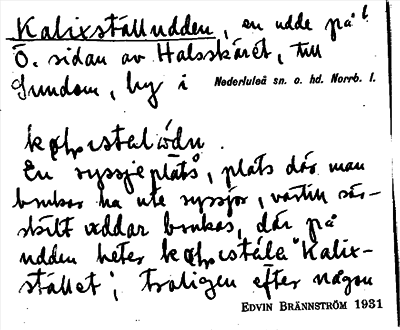 Kalixställudden, en udde på
Ö. sidan av Halsskäret, till
Sundom, by i Nederluleå sn. o. hd. Norrb. l.
En ryssjeplats, plats där man
brukar ha ute ryssjor, vartill sär-
skilt uddar brukas, där på
udden heter "Kalix-
stället", troligen efter någon
EDVIN BRÄNNSTRÖM 1931